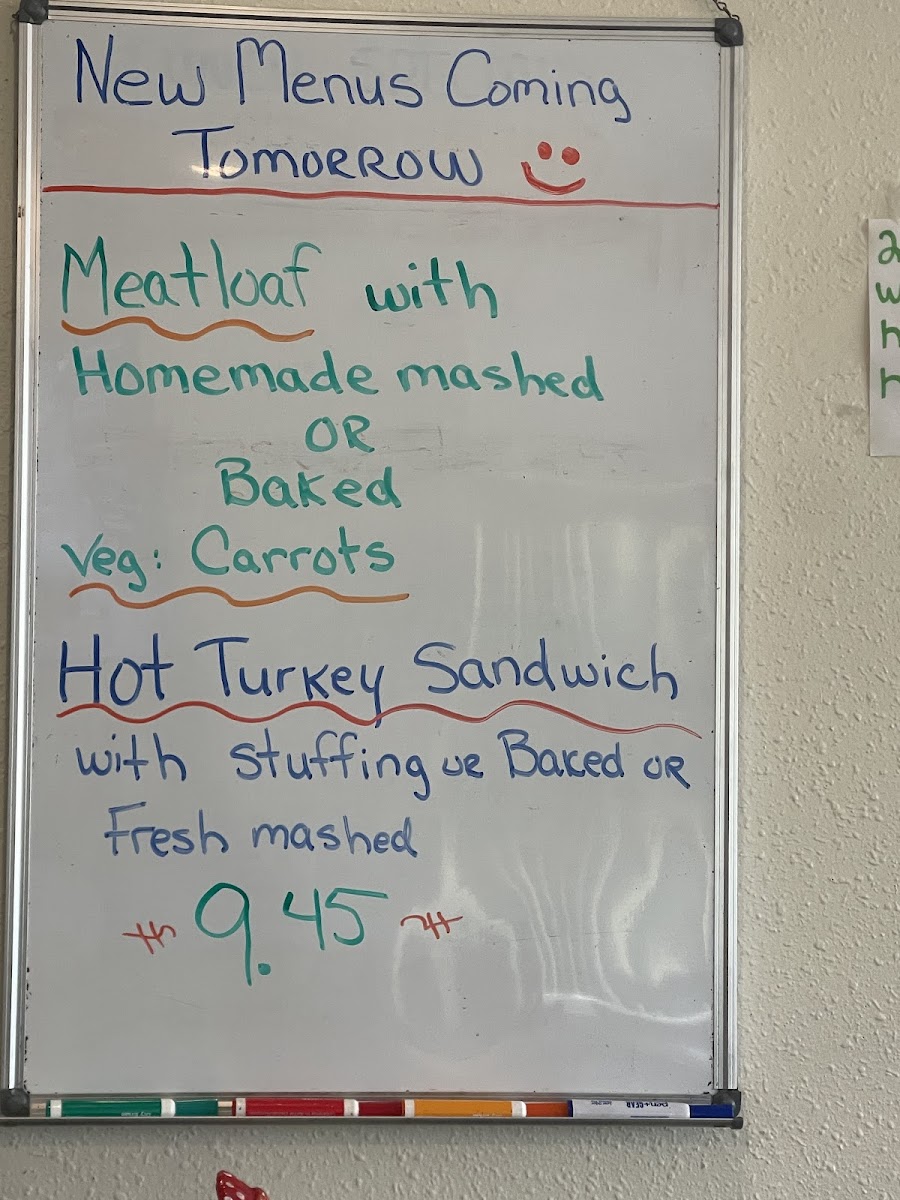 New Menus Coming
Tomorrow
Meatloaf with
Homemade mashed
OR
Baked
Veg: Carrots
Hot Turkey Sandwich
with stuffing or Baked or
Fresh mashed
9.45
2
w
h